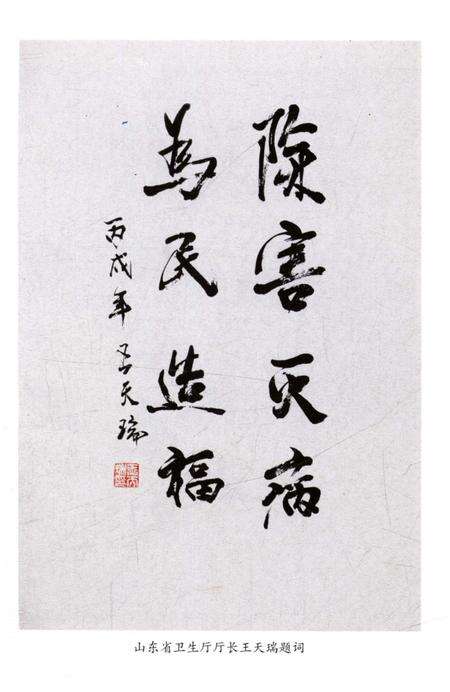 除害灭病
为民造福
丙戌年 王天瑞
山东省卫生厅厅长王天瑞题词